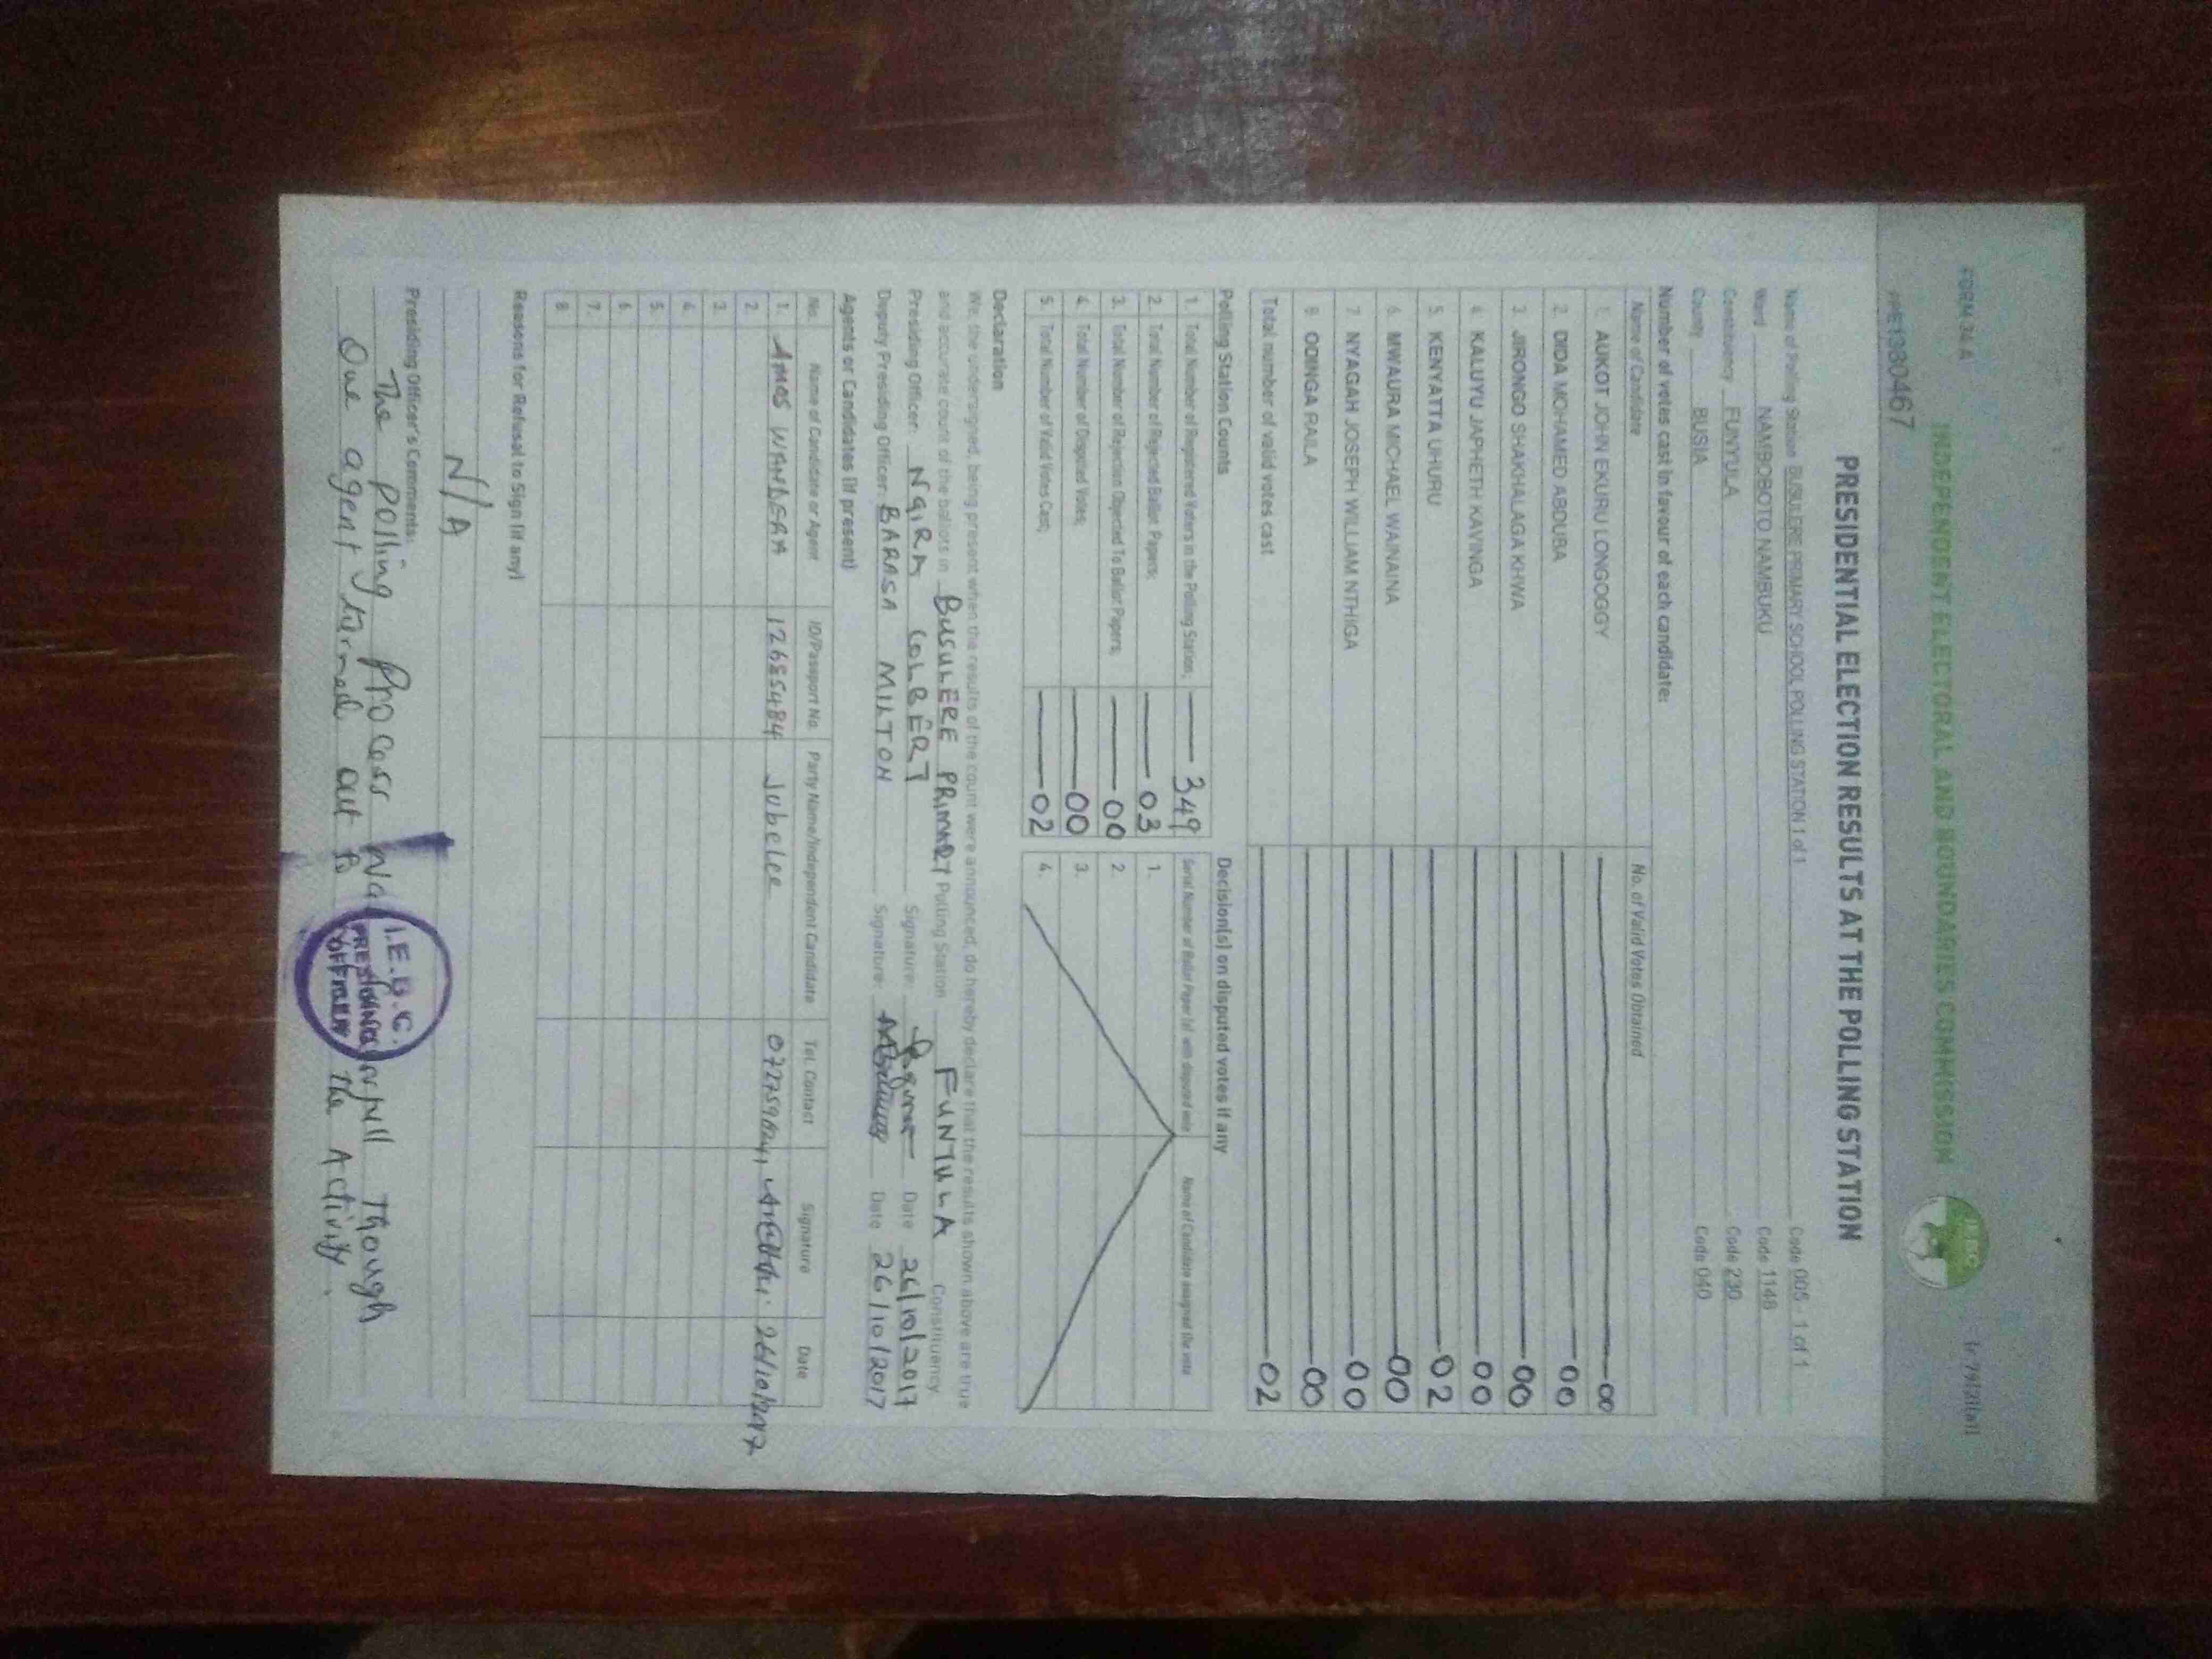 FORM 34 A
(r 79(2)(a))
INDEPENDENT ELECTORAL AND BOUNDARIES COMMISSION
IEBC
PRESIDENTIAL ELECTION RESULTS AT THE POLLING STATION
Name of Polling Station BUSULERE PRIMARY SCHOOL POLLING STATION 1 of 1 Code 005 - 1 of 1
Ward NAMBOBOTO NAMBUKU Code 1148
Constituency FUNYULA Code 230
County BUSIA Code 040
Number of votes cast in favour of each candidate:
Name of Candidate No. of Valid Votes Obtained
1. AUKOT JOHN EKURU LONGOGGY 00
2. DIDA MOHAMED ABDUBA 00
3. JIRONGO SHAKHALAGA KHWA 00
4. KALUYU JAPHETH KAVINGA 00
5. KENYATTA UHURU 02
6. MWAURA MICHAEL WAINAINA 00
7. NYAGAH JOSEPH WILLIAM NTHIGA 00
8. ODINGA RAILA 00
Total number of valid votes cast 02
Polling Station Counts
1. Total Number of Registered Voters in the Polling Station; 349
2. Total Number of Rejected Ballot Papers; 03
3. Total Number of Rejection Objected To Ballot Papers; 00
4. Total Number of Disputed Votes; 00
5. Total Number of Valid Votes Cast; 02
Decision(s) on disputed votes if any
Serial Number of Ballot Paper (s) with disputed vote Name of Candidate assigned the vote
1.
2.
3.
4.
Declaration
We, the undersigned, being present when the results of the count were announced, do hereby declare that the results shown above are true
and accurate count of the ballots in BUSULERE PRIMARY Polling Station FUNYULA Constituency
Presiding Officer: NGIRA COLBERT Signature: Date 26/10/2017
Deputy Presiding Officer: BARASA MILTON Signature: Date 26/10/2017
Agents or Candidates (if present)
No. Name of Candidate or Agent ID/Passport No. Party Name/Independent Candidate Tel. Contact Signature Date
1. AMOS WANDERA 12685484 Jubelee 26/10/2017
2.
3.
4.
5.
6.
7.
8.
Reasons for Refusal to Sign (if any)
N/A
Presiding Officer's Comments:
The polling Process Though
One agent turned out to the Activity.
I.E.B.C.
PRESIDING
OFFICER